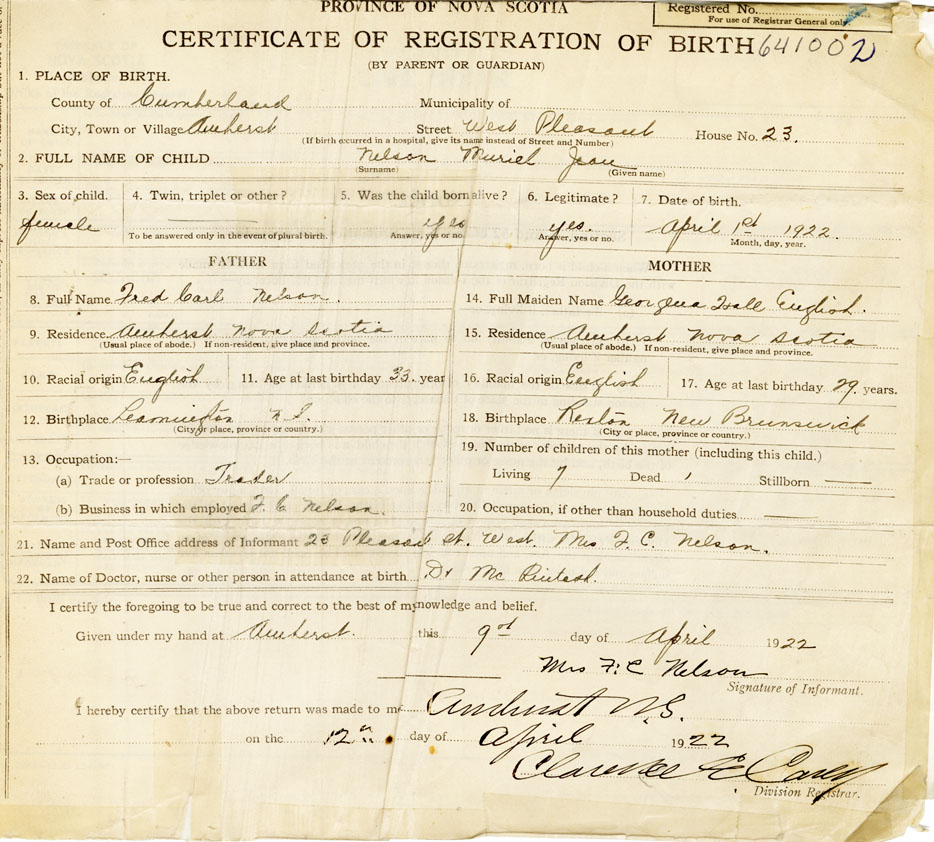 PROVINCE OF NOVA SCOTIA
Registered No.
For use of Registrar General only.
CERTIFICATE OF REGISTRATION OF BIRTH 641002
(BY PARENT OR GUARDIAN)
1. PLACE OF BIRTH.
County of Cumberland Municipality of
City, Town or Village Amherst Street West Pleasant House No. 23.
(If birth occurred in a hospital, give its name instead of Street and Number)
2. FULL NAME OF CHILD Nelson Muriel Jean
(Surname) (Given name)
3. Sex of child. 4. Twin, triplet or other? 5. Was the child born alive? 6. Legitimate? 7. Date of birth.
female yes yes. April 1st 1922.
To be answered only in the event of plural birth. Answer, yes or no. Answer, yes or no. Month, day, year.
FATHER MOTHER
8. Full Name Fred Carl Nelson. 14. Full Maiden Name Georgena Hall English.
9. Residence Amherst Nova Scotia 15. Residence Amherst Nova Scotia
(Usual place of abode.) If non-resident, give place and province. (Usual place of abode.) If non-resident, give place and province.
10. Racial origin English 11. Age at last birthday 33. year 16. Racial origin English 17. Age at last birthday 29. years.
12. Birthplace Leamington N.S. 18. Birthplace Rexton New Brunswick
(City or place, province or country.) (City or place, province or country.)
13. Occupation:— 19. Number of children of this mother (including this child.)
(a) Trade or profession Trader Living 7 Dead 1 Stillborn —
(b) Business in which employed F. C. Nelson. 20. Occupation, if other than household duties —
21. Name and Post Office address of Informant 23 Pleasant St. West. Mrs F. C. Nelson.
22. Name of Doctor, nurse or other person in attendance at birth Dr
I certify the foregoing to be true and correct to the best of my knowledge and belief.
Given under my hand at Amherst. this 9th day of April 1922
Mrs F. C Nelson
Signature of Informant.
I hereby certify that the above return was made to me Amherst N.S.
on the 12th day of April 1922
Clarence E
Division Registrar.